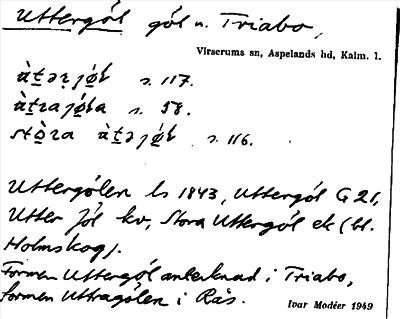 Uttergöl göl n. Triabo,
Virserums sn, Aspelands hd, Kalm. l.
s. 117.
s. 58.
s. 116.
Uttergölen ls 1843, Uttergöl G 21,
Utter Jöl kv, Stora Uttergöl ek (bl.
Holmskog).
Formen Uttergöl antecknad i Triabo,
formen Uttragölen i Rås.
Ivar Modéer 1949